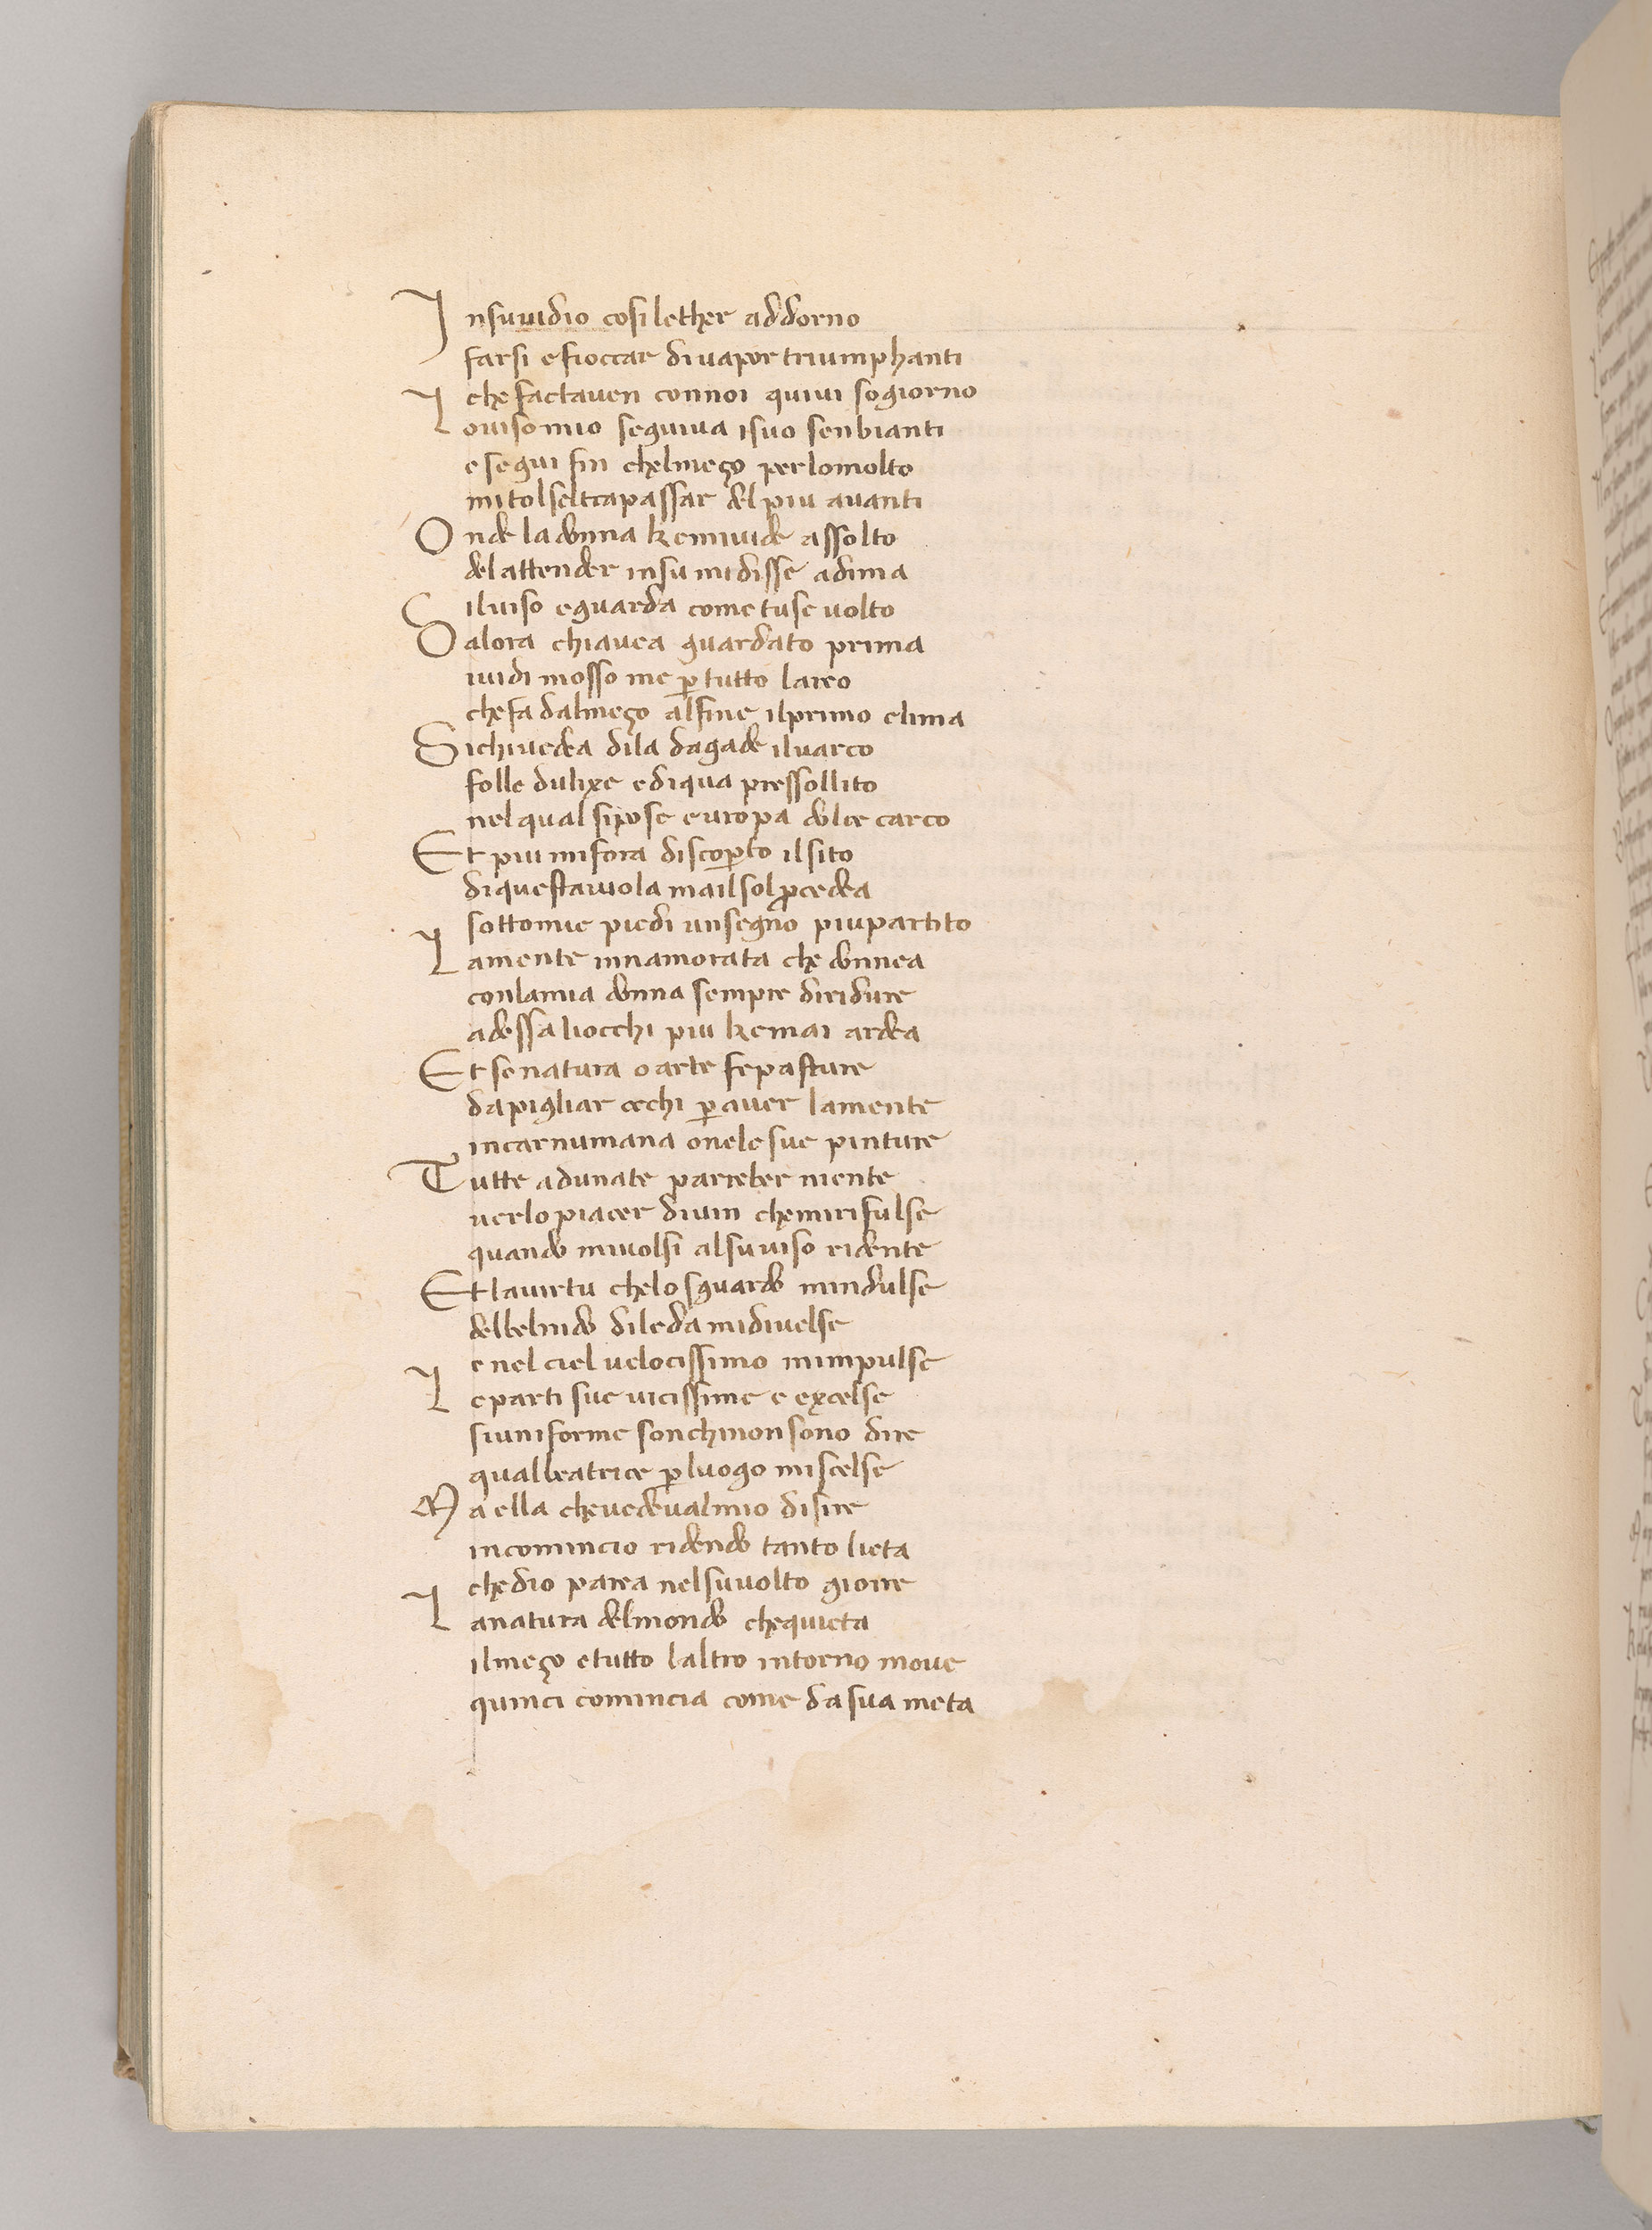 Insuvidio cosi lether addorno
farsi e fioccar di vapor triumphanti
che factaven connoi quivi sogiorno
Lo viso mio seguiva i suo senbianti
e segui fin chelmeço per lo molto
mi tolsel trapassar del piu avanti
Onde la donna ke mi vide assolto
del attender in su mi disse adima
il viso e guarda come tu se volto
Dalora chi avea guardato prima
i vidi mosso me ꝑ tutto larco
che fa dal meço al fine il primo clima
Si chi vedea di la da gade il varco
folle dulixe e di qua presso llito
nel qual si pose europa dolce carco
Et piu mi fora discoꝑto il sito
di questa iuola ma il sol ꝓcedea
sotto mie piedi un segno piu partito
La mente innamorata che donnea
con la mia donna sempre di ridure
ad essa li occhi piu ke mai ardea
Et se natura o arte fe pasture
da pigliar occhi ꝑ aver la mente
in carnumana o nele sue pinture
Tutte adunate parreber niente
ver lo piacer divin che mi rifulse
quando mi volsi al su viso ridente
Et la virtu che lo sguardo mindulse
del bel nido di leda mi divelse
e nel ciel velocissimo mimpulse
Le parti sue vicissime e excelse
si uniforme son chi non so no dire
qual beatrice ꝑ luogo mi scelse
Ma ella che vedeval mio disire
incomincio ridendo tanto lieta
che dio parea nel su volto gioire
La natura del mondo che quieta
il meço e tutto laltro intorno move
quinci comincia come da sua meta